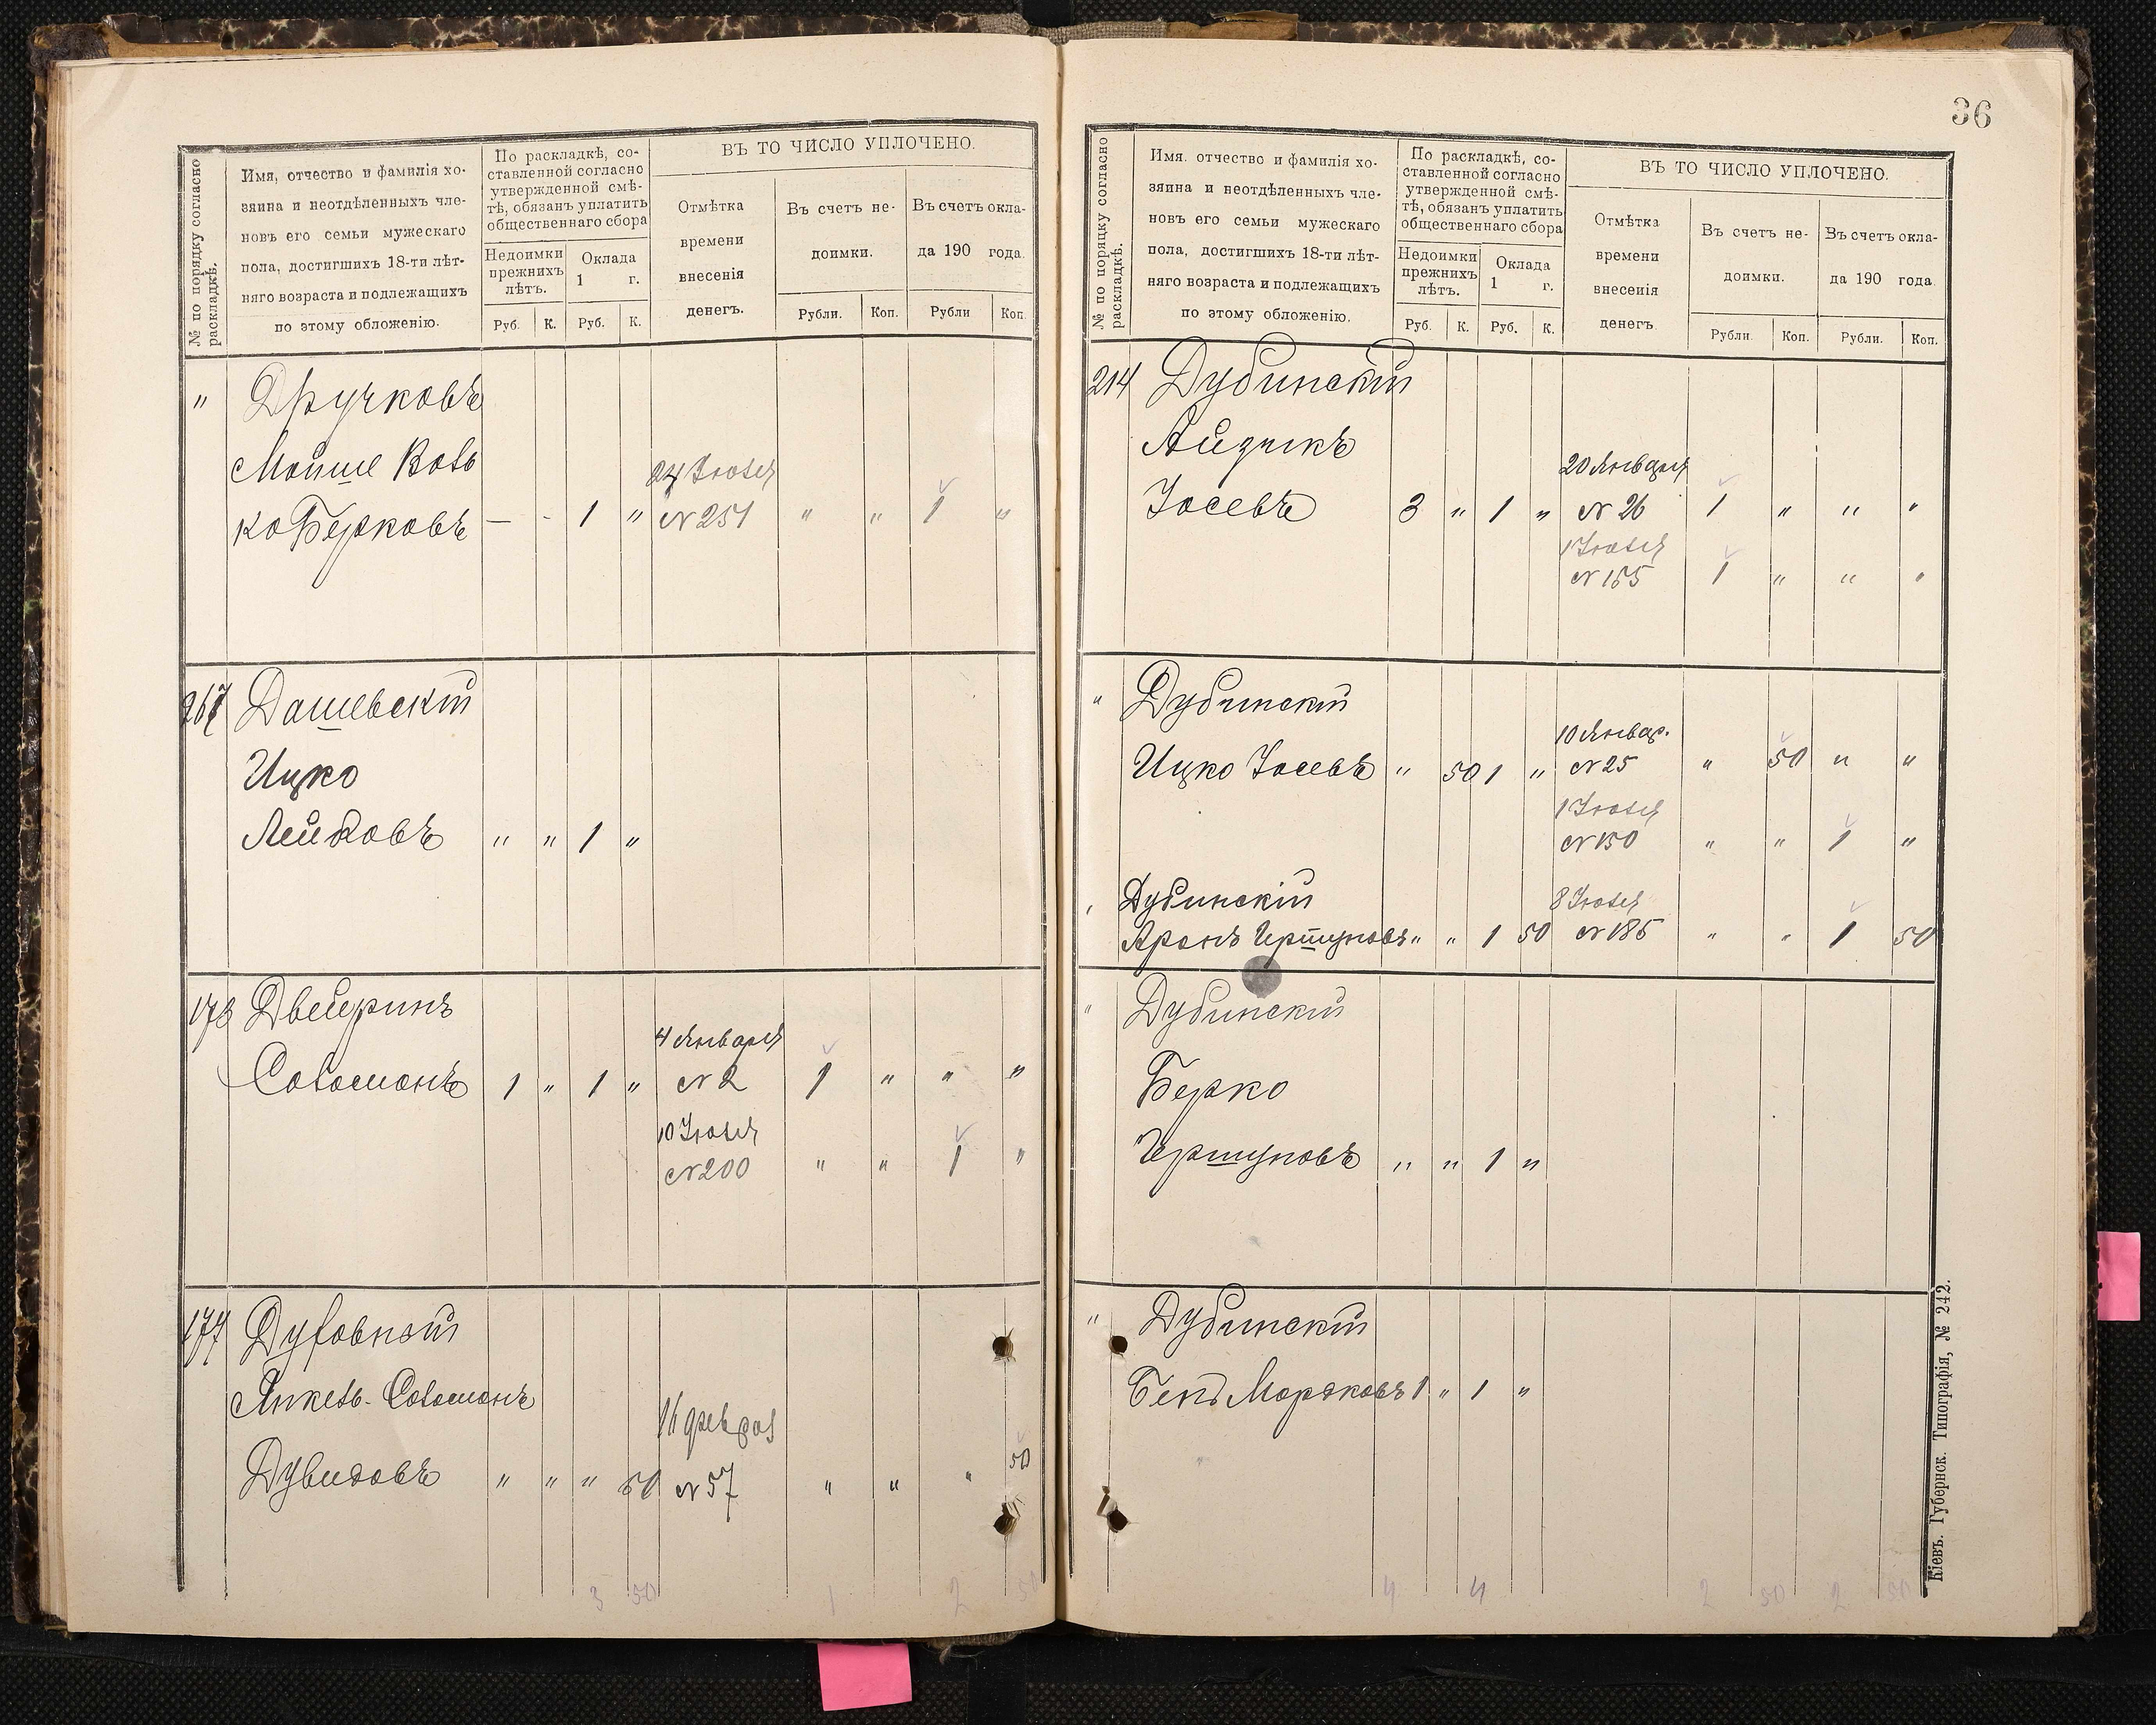 № по порядку согласно
раскладкѣ.
Имя, отчество и фамилія хо-
зяина и неотдѣленныхъ чле-
новъ его семьи мужескаго
пола, достигшихъ 18-ти лѣт-
няго возраста и подлежащихъ
по этому обложенію.
По раскладкѣ, со-
ставленной согласно
утвержденной смѣ-
тѣ, обязанъ уплатить
общественнаго сбора
Недоимки
прежнихъ
лѣтъ.
Оклада
1 г.
Руб. К. Руб. К.
ВЪ ТО ЧИСЛО УПЛОЧЕНО.
Отмѣтка
времени
внесенія
денегъ.
Въ счетъ не-
доимки.
Въ счетъ окла-
да 190 года.
Рубли. Коп. Рубли Коп.
" Дручковъ
Мойше Воль
ко Берковъ — - 1 "
24 Іюля
№ 251 " " 1 "
267 Дашевскій
Ицко
Лейбовъ " " 1 "
178 Двейринъ
Соломонъ 1 " 1 "
4 Января
№ 2 1 " " "
10 Іюля
№ 200 " " 1 "
177 Духовный
Янкель-Соломонъ
Дувидовъ " " " 50
16 феврал
№ 57 " " " 50
3 50 1 2 50
36
№ по поряцку согласно
раскладкѣ.
Имя. отчество и фамилія хо-
зяина и неотдѣленныхъ чле-
новъ его семьи мужескаго
пола, достигшихъ 18-ти лѣт-
няго возраста и подлежащихъ
по этому обложенію.
По раскладкѣ, со-
ставленной согласно
утвержденной смѣ-
тѣ, обязанъ уплатить
общественнаго сбора
Недоимки
прежнихъ
лѣтъ.
Оклада
1 г.
Руб. К. Руб. К.
ВЪ ТО ЧИСЛО УПЛОЧЕНО.
Отмѣтка
времени
внесенія
денегъ.
Въ счетъ не-
доимки.
Въ счетъ окла-
да 190 года.
Рубли. Коп. Рубли. Коп.
214 Дубинскій
Айзикъ
Іосевъ 3 " 1 "
20 Января
№ 26 1 " " "
1 Іюля
№ 155 1 " " "
" Дубинскій
Ицко Іосевъ " 50 1 "
10 Январ.
№ 25 " 50 " "
1 Іюля
№ 150 " " 1 "
" Дубинскій
Аронъ Гершуновъ " " 1 50
8 Іюля
№ 185 " " 1 50
" Дубинскій
Берко
Гершуновъ " " 1 "
" Дубинскій
Бенъ Мордковъ 1 " 1 "
4 4 2 50 2 50
Кіевъ. Губернск. Типографія, № 242.